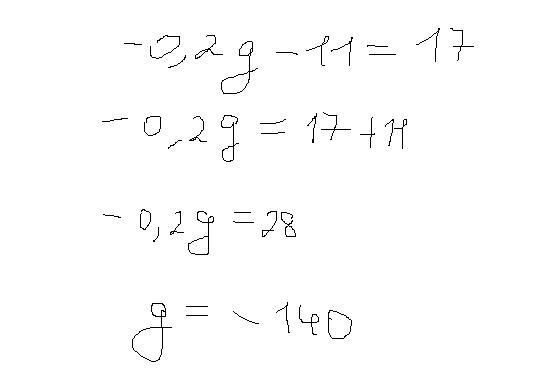 -0,2g - 11 = 17
-0,2g = 17 + 11
-0,2g = 28
g = -140